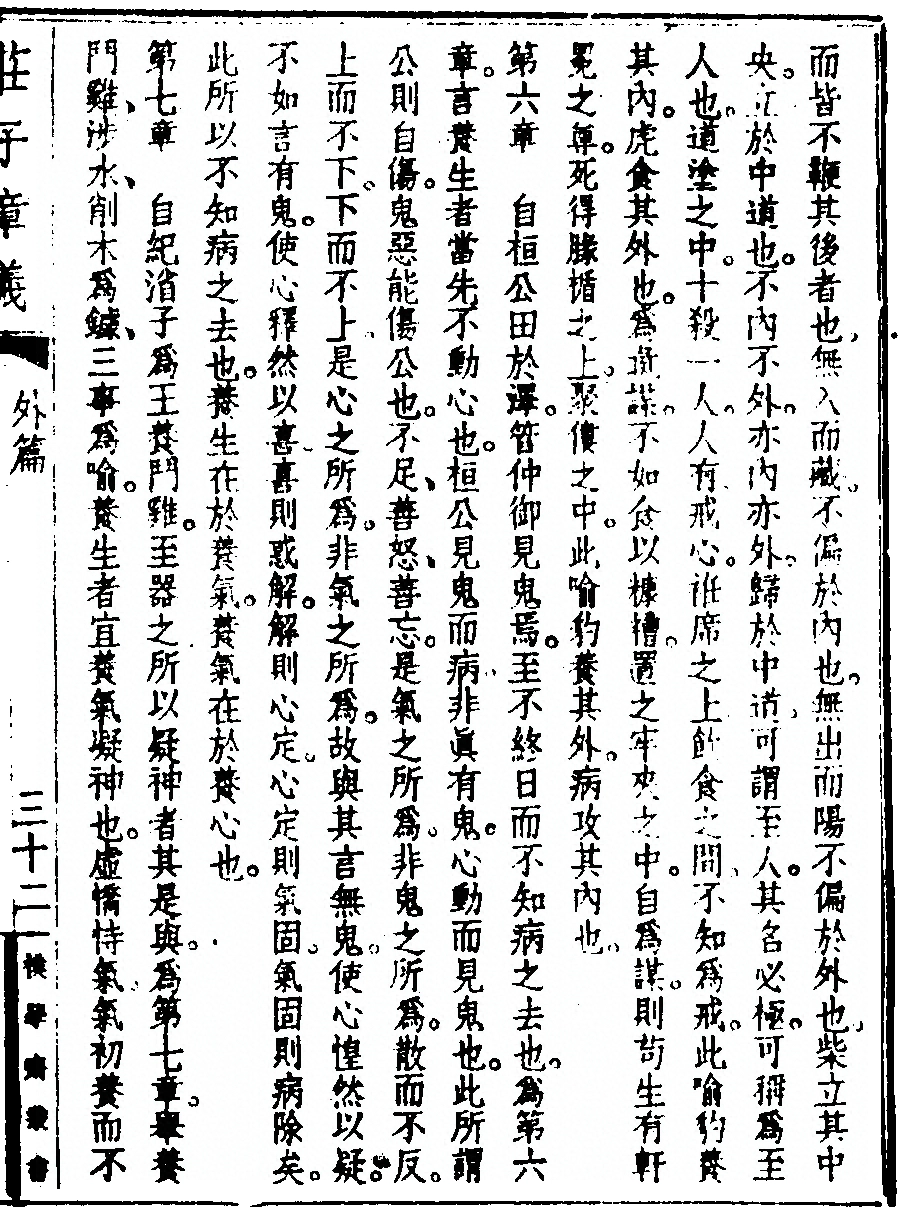 而皆不鞭其後者也無入而藏。不偏於內也。無出而陽不偏於外也。柴立其中
央。立於中道也。不內不外。亦內亦外。歸於中道。可謂至人其名必極。可稱爲至
人也。道塗之中十殺一人。人有戒心。袵席之上飮食之間。不知爲戒。此喻豹養
其內。虎食其外也。爲彘謀。不如食以糠糟。置之牢筴之中。自爲謀。則苟生有軒
冕之尊。死得腞楯之上。聚僂之中。此喻豹養其外。病攻其內也。
第六章　自桓公田於澤。管仲御見鬼焉。至不終日而不知病之去也。爲第六
章。言養生者當先不動心也。桓公見鬼而病。非眞有鬼。心動而見鬼也。此所謂
公則自傷。鬼惡能傷公也。不足、善怒、善忘。是氣之所爲。非鬼之所爲。散而不反。
上而不下。下而不上。是心之所爲。非氣之所爲。故與其言無鬼。使心惶然以疑。
不如言有鬼。使心釋然以喜。喜則惑解。解則心定。心定則氣固。氣固則病除矣。
此所以不知病之去也。養生在於養氣。養氣在於養心也。
第七章　自紀渻子爲王養鬥雞。至器之所以疑神者其是與。爲第七章。舉養
鬥雞、涉水、削木爲鐻、三事爲喻。養生者宜養氣凝神也。虛憍恃氣。氣初養而不
莊子章義
外篇
三十二
樸學齋叢書